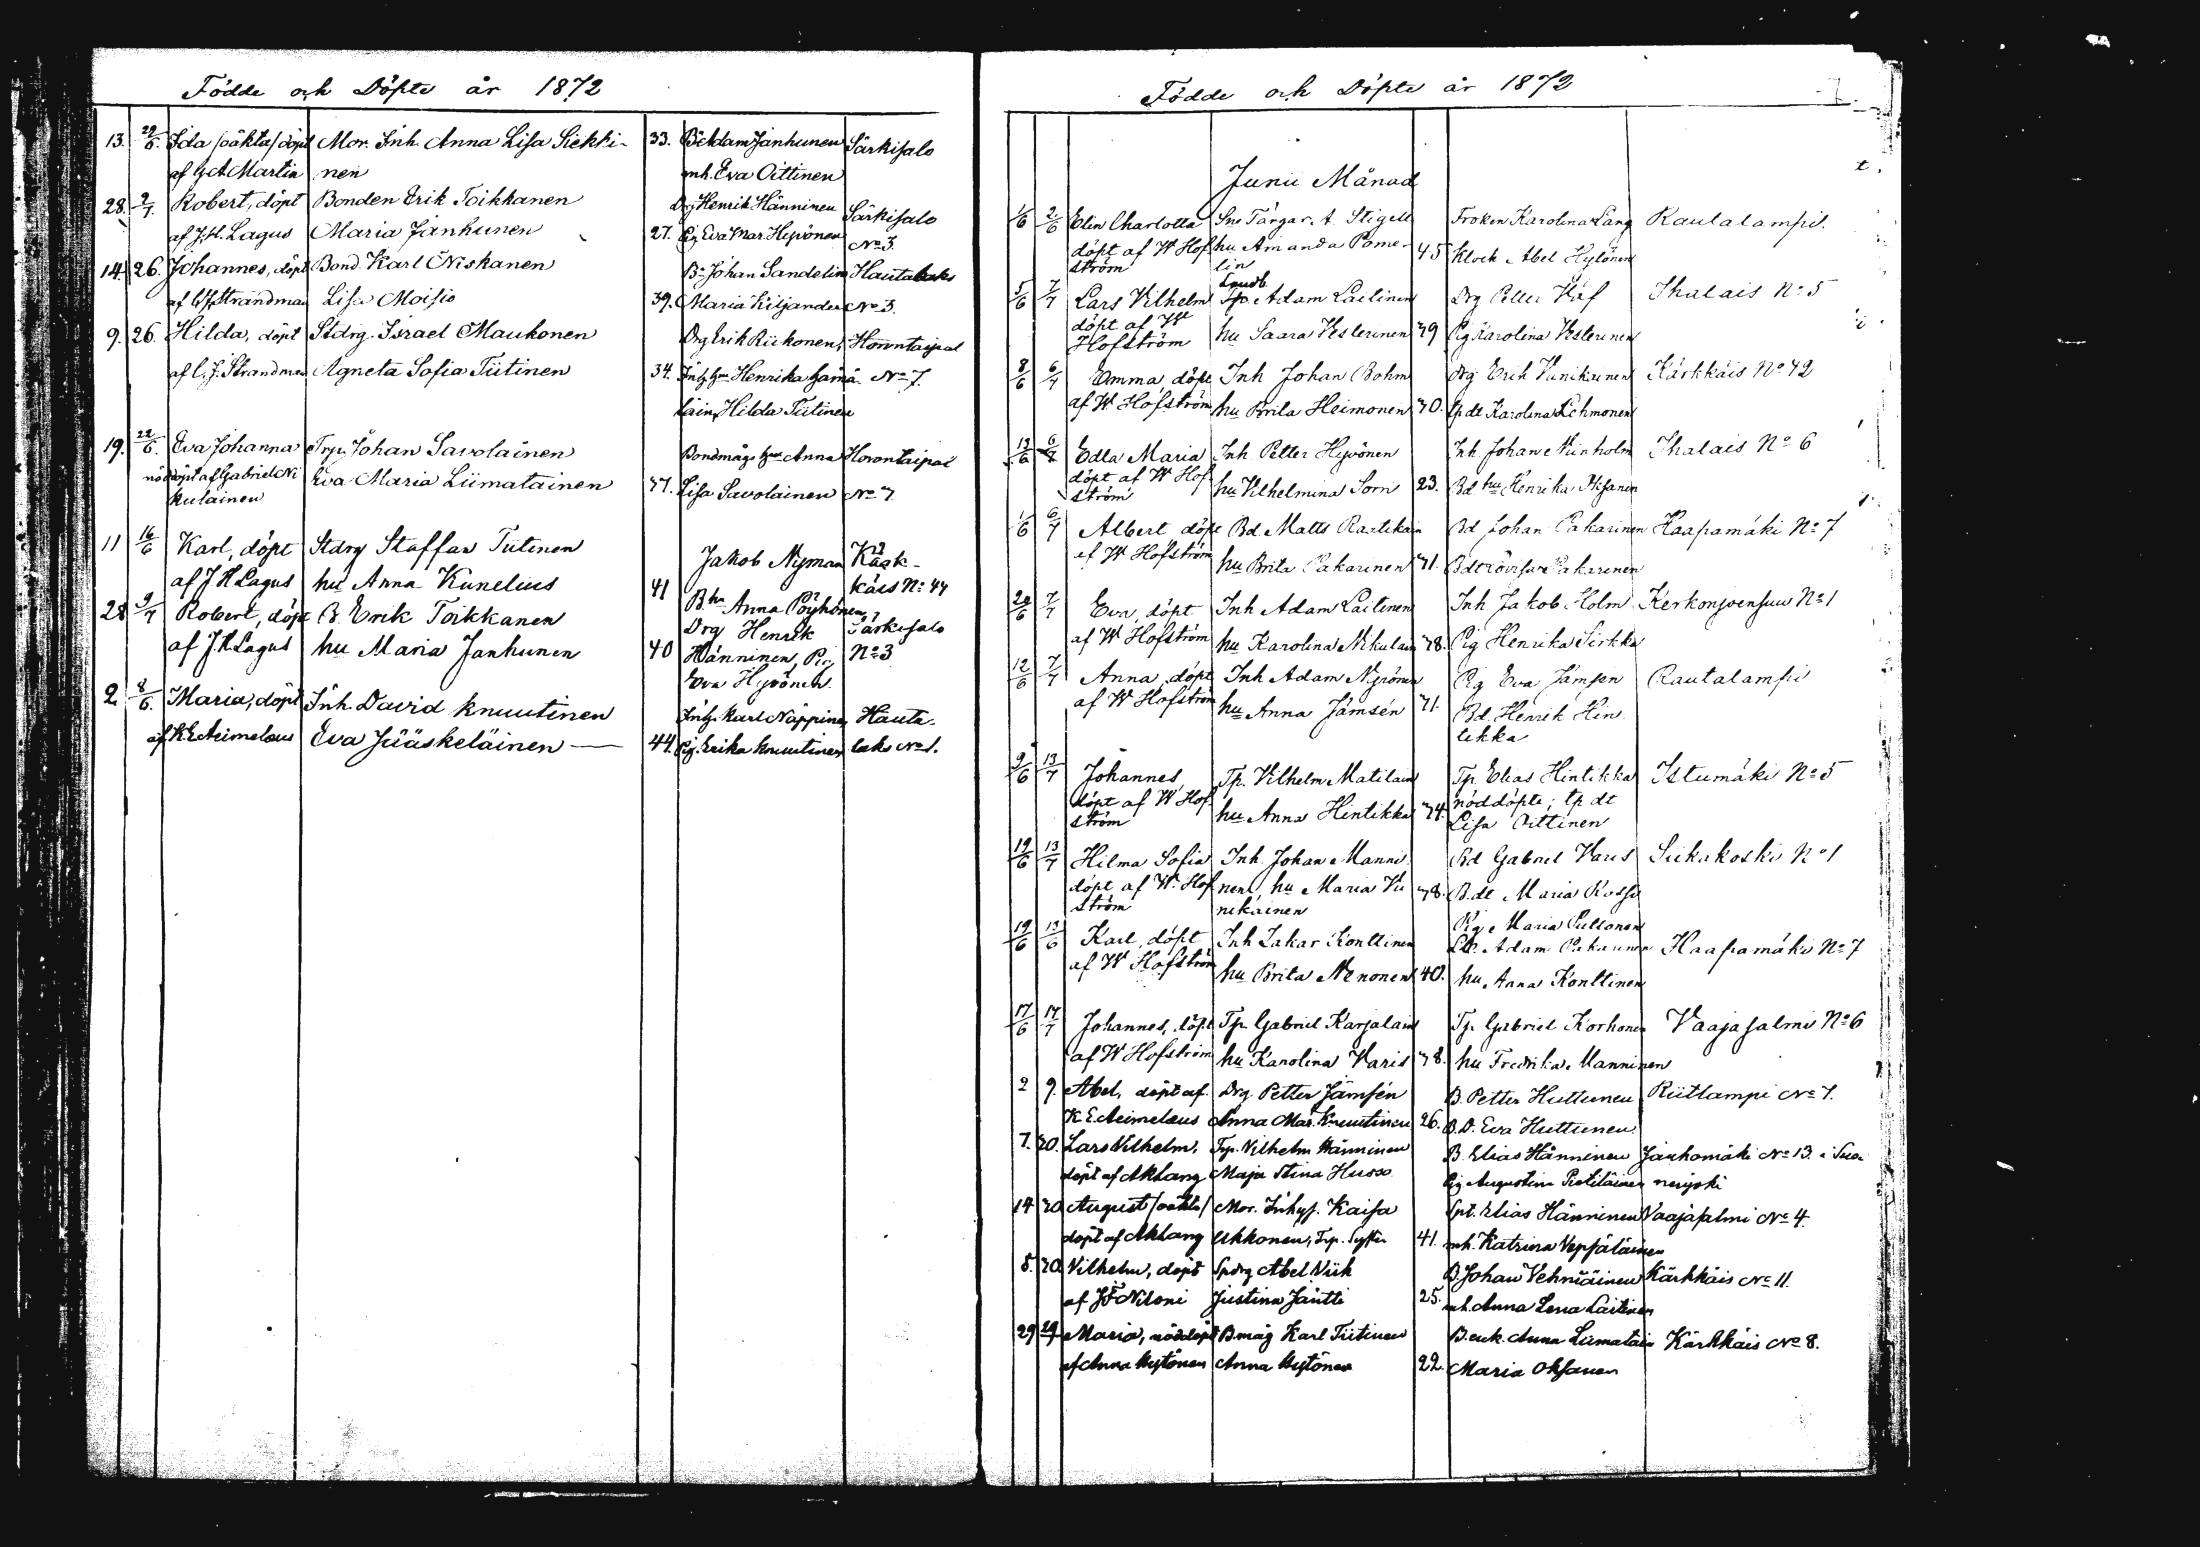 Födde och Döpte år 1872
13. 29/6. Ida /oäkta/ döpt Mor. Inh. Anna Lisa Siekki- 33. Adam Janhunen Särkisalo
af Martin nen mh. Eva Oittinen
28. 2/7. Robert, döpt Bonden Erik Toikkanen Drg Henrik Hänninen Särkisalo
af J. H. Lagus Maria Janhunen 27. Pig. Eva Mar. Hyvönen No 3.
14. 26. Johannes, döpt Bond. Karl Niskanen Bn Johan Sandelin Hautalaks
af Strandman Lisa Moisio 39. Maria Kiljander No 3.
9. 26. Hilda, döpt Stdrg. Israel Maukonen Drg Erik Riekonen, Horontaipal
af C. J. Strandman Agneta Sofia Tiitinen 34. Henrika Hämä- No 7.
läin, Hilda Tiitinen
19. 22/6. Eva Johanna Trp. Johan Savolainen Bondmågs Anna Horontaipal
nöddöpt af Gabriel Ni Eva Maria Liimatainen 37. Lisa Savolainen No 7
kulainen
11 16/6 Karl, döpt Stdrg Staffan Tiitinen Jakob Nyman Kärk-
af J H Lagus hu Anna Kunelius 41 Bhu Anna Pöyhönen käis No 44
28 9/7 Robert, döpt B. Erik Toikkanen Drg Henrik Särkisalo
af J. H. Lagus hu Maria Janhunen 40 Hänninen, Pig No 3
Eva Hyvönen.
2. 8/6. Maria, döpt Inh. David Knuutinen Karl Näppinen Hauta-
af K E Aeimelæus Eva Jääskeläinen — 44. Pig. Erika Knuutinen laks No 1.
Födde och Döpte år 1872
Junii Månad
1/6 2/6 Elin Charlotta Sne Färgar. A. Stigell Fröken Karolina Lang Rautalampi.
döpt af W Hof- hu Amanda Pome- 45 Klock Abel Hytönen
ström lin
5/6 7/7 Lars Vilhelm Adam Laitinen Drg Petter Käf Ihalais No 5
döpt af W hu Saara Vesterinen 39 Pig Karolina Vesterinen
Hofström
8/6 6/7 Emma, döpt Inh Johan Bohm Drg Erik Kärkkäis No 42
af W Hofström hu Brita Heimonen 30. Karolina Lehmonen
13/6 6/7 Edla Maria Inh Petter Hyvönen Inh. Johan Ihalais No 6
döpt af W Hof- hu Vilhelmina Sorn 23. Bd hu Henrika Piisanen
ström
1/6 6/7 Albert döpt Bd Matts Rautiain Bd Johan Pakarinen Haapamäki No 7
af W Hofström hu Brita Pakarinen 31. Pakarinen
20/6 7/7 Eva, döpt Inh Adam Laitinen Inh Jakob Holm Kerkonjoensuu No 1
af W Hofström hu Karolina Nikulain 38. Pig Henrika Sirkka
12/6 7/7 Anna, döpt Inh Adam Nyrönen Pig Eva Jämsen Rautalampi
af W Hofström hu Anna Jämsén 31. Bd. Henrik Hin-
tikka
9/6 13/7 Johannes, Tp. Vilhelm Matilain Tp. Elias Hintikka Istumäki No 5
döpt af W Hof- hu Anna Hintikka 34. nöddöpte; tp dt
ström Lisa Oittinen
19/6 13/7 Hilma Sofia Inh. Johan Manni- Bd Gabriel Varis Siikakoski No 1
döpt af W. Hof- nen, hu Maria Vii- 38. B. dt Maria Rossi
ström nikainen
19/6 13/6 Karl, döpt Inh Zakar Konttinen Pig Maria Puttonen
af W Hofström hu Brita Nenonen 40. Adam Pakarinen Haapamäki No 7
hu Anna Konttinen
17/6 14/7 Johannes, döpt Tp. Gabriel Karjalain Tp. Gabriel Korhonen Vaajasalmi No 6
af W Hofström hu Karolina Varis 38. hu Fredrika Manninen
2 9. Abel, döpt af Drg. Petter Jämsén B. Petter Huttunen Riitlampi No 7.
K E Aeimelæus Anna Mar. Knuutinen 26. B. D. Eva Huttunen.
7. 20. Lars Vilhelm, Trp. Vilhelm Hänninen B. Elias Hänninen Jauhomäki No 13. i Suo-
döpt af A K Lang Maja Stina Husso Pig Augustina Pietiläinen nenjoki
14 20 August /oäkta/ Mor. Inhys. Kaisa Elias Hänninen Vaajasalmi No 4.
döpt af A K Lang Ukkonen, Trp. 41. mh. Katrina Vepsäläinen
5. 20 Vilhelm, döpt Abel Niik B. Johan Vehviläinen Kärkkäis No 11.
af J F Niloni Justina Jäntti 25. mh. Anna Lena Laitinen
29 29/7 Maria, nöddöpt B.måg Karl Tiitinen B.enk. Anna Liimatain Kärkkäis No 8.
af Anna Hytönen Anna Hytönen 22. Maria Oksanen